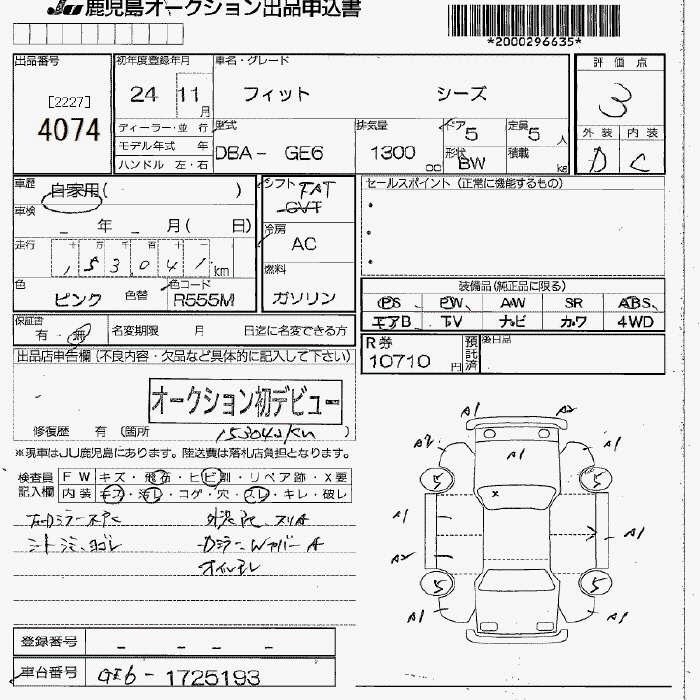 JU 鹿児島オークション出品申込書
*2000296635*
出品番号
[2227]
4074
初年度登録年月
24 11月
車名・グレード
フィット シーズ
評価点
3
外装 内装
D C
ディーラー・並行
モデル年式 年
ハンドル 左・右
型式
DBA- GE6
排気量
1300 cc
ドア 5
形状 BW
定員 5 人
積載 kg
車歴
自家用( )
車検
年 月( 日)
走行
十 万 千 百 十 一
153041 km
色
ピンク
色替
色コード
R555M
シフト FAT
CVT
冷房
AC
燃料
ガソリン
セールスポイント (正常に機能するもの)
装備品(純正品に限る)
PS PW AW SR ABS
エアB TV ナビ カワ 4WD
保証書
有・無
名変期限 月 日迄に名変できる方
R券
10710 円
預託済
後日品
出品店申告欄(不良内容・欠品など具体的に記入して下さい)
オークション初デビュー
修復歴 有 (箇所 )
※現車はJU鹿児島にあります。陸送費は落札店負担となります。
検査員記入欄
FW キズ・飛石・ヒビ割・リペア跡・X要
内装 キズ・汚レ・コゲ・穴・スレ・キレ・破レ
オイルモレ
A1 A2
A2 A1 A1
5 5
A1 A1
A2
5 5
A1 A1
登録番号 - - -
車台番号 GE6-1725193